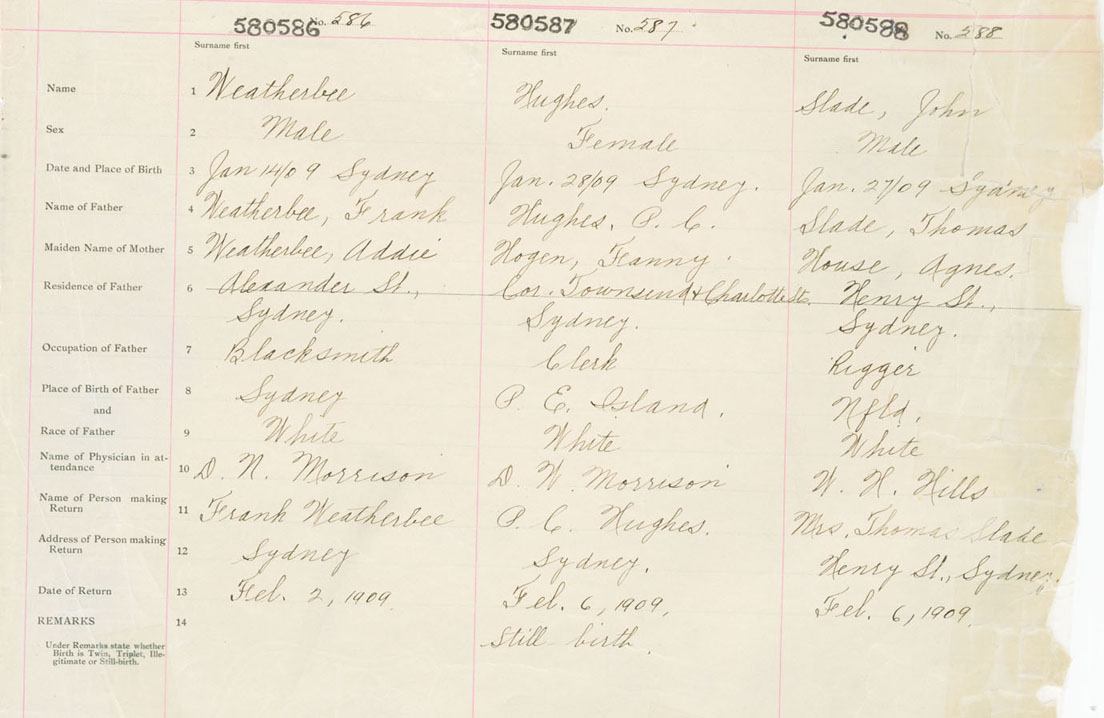 580586 No. 286 580587 No. 287 580588 No. 288
Surname first Surname first Surname first
Name 1 Weatherbee Hughes. Slade, John
Sex 2 Male Female Male
Date and Place of Birth 3 Jan 14/09 Sydney Jan. 28/09 Sydney. Jan. 27/09 Sydney
Name of Father 4 Weatherbee, Frank Hughes, P. C. Slade, Thomas
Maiden Name of Mother 5 Weatherbee, Addie Hogen, Fanny. House, Agnes.
Residence of Father 6 Alexander St., Cor. Townsend & Charlotte St. Henry St.,
Sydney. Sydney. Sydney.
Occupation of Father 7 Blacksmith Clerk Rigger
Place of Birth of Father 8 Sydney P. E. Island. Nfld.
and
Race of Father 9 White White White
Name of Physician in at-
tendance 10 D. N. Morrison D. W. Morrison W. H. Hills
Name of Person making
Return 11 Frank Weatherbee P. C. Hughes. Mrs. Thomas Slade
Address of Person making
Return 12 Sydney Sydney. Henry St., Sydney.
Date of Return 13 Feb. 2, 1909. Feb. 6, 1909. Feb. 6, 1909.
REMARKS 14 Still birth.
Under Remarks state whether
Birth is Twin, Triplet, Ille-
gitimate or Still-birth.